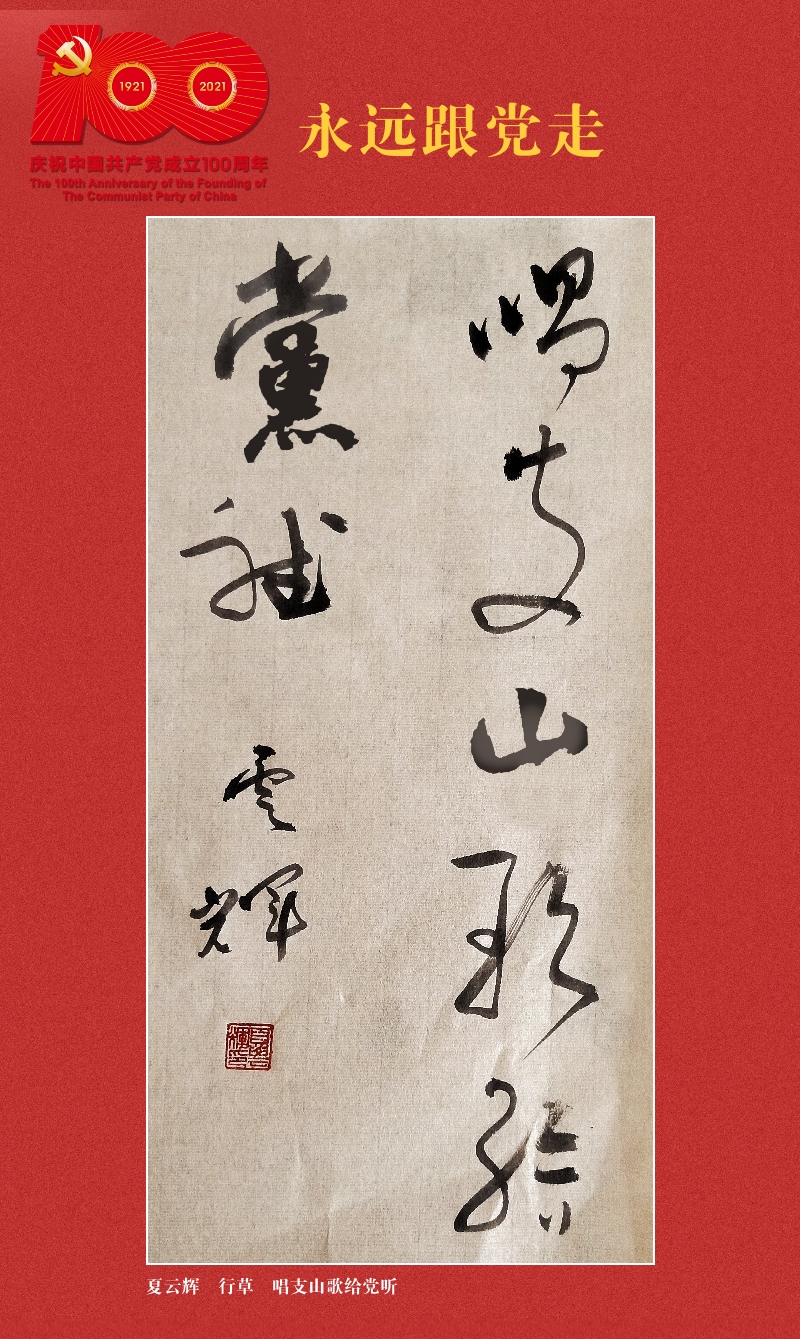 1921
2021
庆祝中国共产党成立100周年
The 100th Anniversary of the Founding of
The Communist Party of China
永远跟党走
唱支山歌给
黨聽
雲輝
夏云辉 行草 唱支山歌给党听